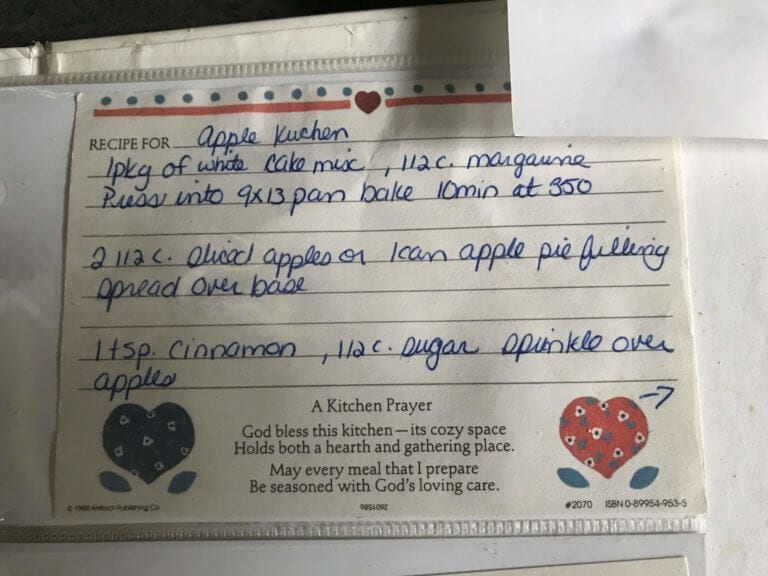 RECIPE FOR Apple Kuchen
1pkg of white cake mix, 1/2 c. margarine
Press into 9x13 pan bake 10min at 350
2 1/2 c. sliced apples or 1can apple pie filling
spread over base
1 tsp. cinnamon, 1/2 c. sugar sprinkle over
apples →
A Kitchen Prayer
God bless this kitchen—its cozy space
Holds both a hearth and gathering place.
May every meal that I prepare
Be seasoned with God's loving care.
© 1986 Antioch Publishing Co
#2070 ISBN 0-89954-953-5